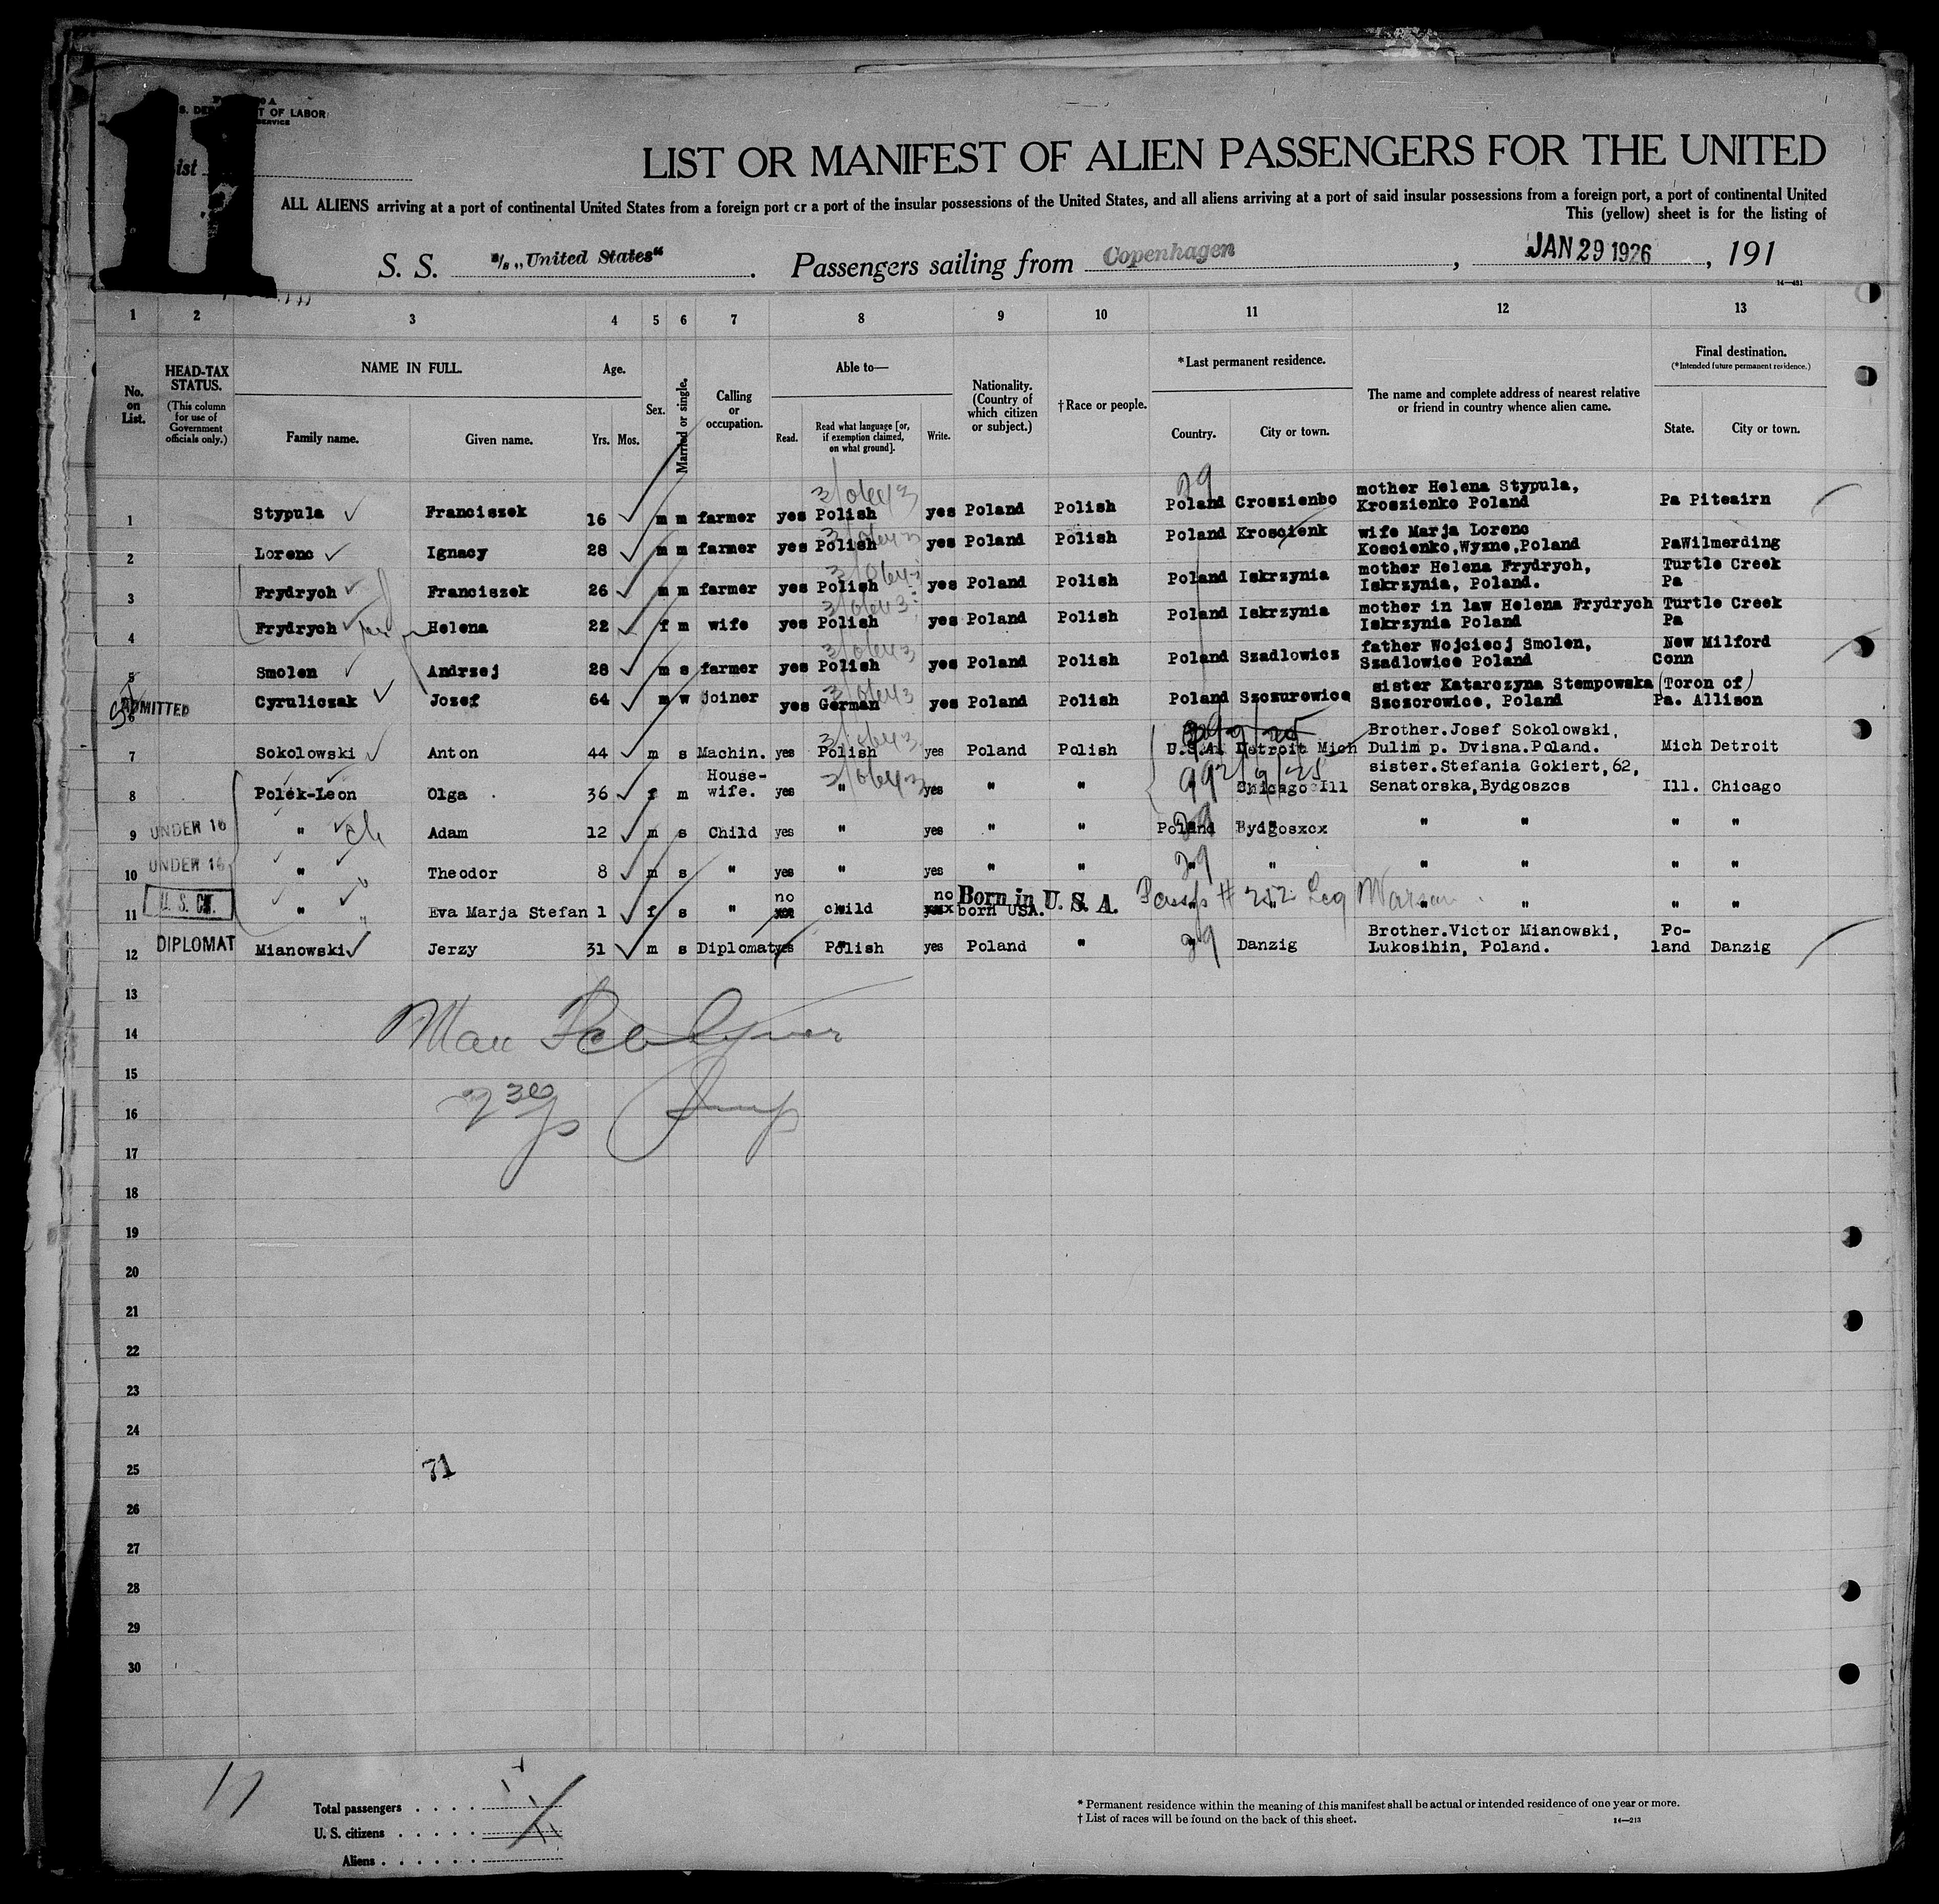 11
T OF LABOR
SERVICE
ist
LIST OR MANIFEST OF ALIEN PASSENGERS FOR THE UNITED
ALL ALIENS arriving at a port of continental United States from a foreign port or a port of the insular possessions of the United States, and all aliens arriving at a port of said insular possessions from a foreign port, a port of continental United
This (yellow) sheet is for the listing of
S. S. s/s „United States“ . Passengers sailing from Copenhagen , JAN 29 1926 , 191
14—451
1 2 3 4 5 6 7 8 9 10 11 12 13
No. on List. HEAD-TAX STATUS. (This column for use of Government officials only.) NAME IN FULL. Family name. Given name. Age. Yrs. Mos. Sex. Married or single. Calling or occupation. Able to— Read. Read what language [or, if exemption claimed, on what ground]. Write. Nationality. (Country of which citizen or subject.) †Race or people. *Last permanent residence. Country. City or town. The name and complete address of nearest relative or friend in country whence alien came. Final destination. (*Intended future permanent residence.) State. City or town.
1 Stypula Franciszek 16 m m farmer yes Polish yes Poland Polish Poland Croszienbo mother Helena Stypula, Kroszienko Poland Pa Piteairn
2 Lorenc Ignacy 28 m m farmer yes Polish yes Poland Polish Poland Kroscienk wife Marja Lorenc Koscienko,Wyzne,Poland PaWilmerding
3 Frydrych Franciszek 26 m m farmer yes Polish yes Poland Polish Poland Iskrzynia mother Helena Frydrych, Iskrzynia, Poland. Turtle Creek Pa
4 Frydrych Helena 22 f m wife yes Polish yes Poland Polish Poland Iskrzynia mother in law Helena Frydrych Iskrzynia Poland Turtle Creek Pa
5 Smolen Andrzej 28 m s farmer yes Polish yes Poland Polish Poland Szadlowicz father Wojciecj Smolen, Szadlowice Poland New Milford Conn
6 ADMITTED Cyruliczak Jozef 64 m w joiner yes German yes Poland Polish Poland Szczurowice sister Katarczyna Stempowska Szczorowice, Poland (Toron of) Pa. Allison
7 Sokolowski Anton 44 m s Machin. yes Polish yes Poland Polish U.S.A. Detroit Mich Brother.Josef Sokolowski, Dulim p. Dvisna.Poland. Mich Detroit
8 Polek-Leon Olga 36 f m House- wife. yes " yes " " Chicago Ill sister.Stefania Gokiert,62, Senatorska,Bydgoszcs Ill. Chicago
9 UNDER 16 " ch Adam 12 m s Child yes " yes " " Poland Bydgoszcx " " " "
10 UNDER 16 " Theodor 8 m s " yes " yes " " 29 " " " " "
11 U. S. CIT. " Eva Marja Stefan 1 f s " no child no Born in U. S. A. born USA. Passp # 252 Leg Warsaw " " " "
12 DIPLOMAT Mianowski Jerzy 31 m s Diplomat yes Polish yes Poland " 29 Danzig Brother.Victor Mianowski, Lukosihin, Poland. Po- land Danzig
13
14
15
16
17
18
19
20
21
22
23
24
25 71
26
27
28
29
30
Total passengers
U. S. citizens
Aliens
* Permanent residence within the meaning of this manifest shall be actual or intended residence of one year or more.
† List of races will be found on the back of this sheet.
14—213